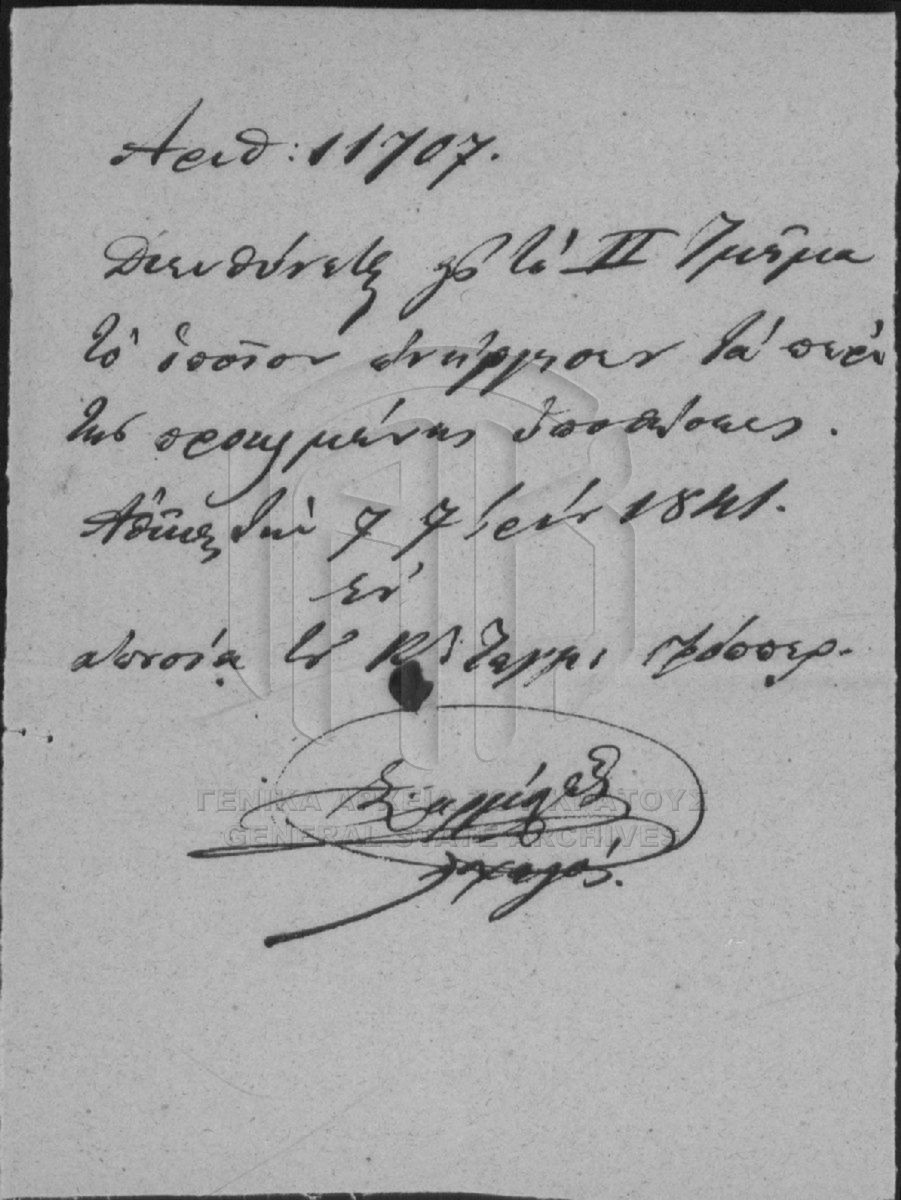 Αριθ: 11707.
Διευθύνεται εἰς τὸ II Τμῆμα
τὸ ὁποῖον ἐνήργησεν τὰ περὶ
τῆς προκειμένης ὑποθέσεως.
Ἀθῆναι τὴν 7 7βρίου 1841.
ἐν
ἀπουσίᾳ τοῦ
λοχαγός.
ΓΕΝΙΚΑ ΑΡΧΕΙΑ ΤΟΥ ΚΡΑΤΟΥΣ
GENERAL STATE ARCHIVES